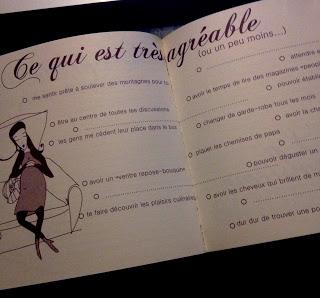 Ce qui est très agréable
(ou un peu moins...)
me sentir prête à soulever des montagnes pour to
être au centre de toutes les discussions
les gens me cèdent leur place dans le bus
avoir un «ventre repose-bouquin»
te faire découvrir les plaisirs culinaires
attendre
avoir le temps de lire des magazines «people
pouvoir établi
changer de garde-robe tous les mois
avoir la cha
piquer les chemises de papa
pouvoir déguster un
avoir les cheveux qui brillent de m
dur dur de trouver une po